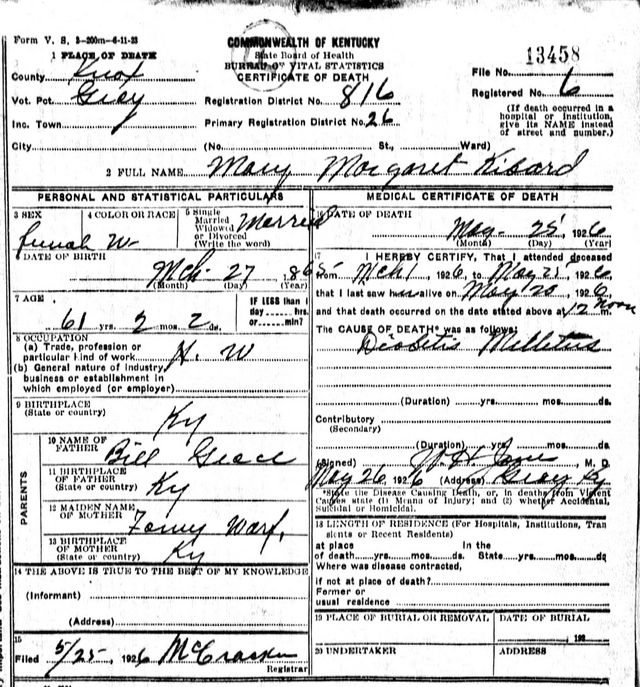 Form V. S. 3-200m-6-11-23
COMMONWEALTH OF KENTUCKY
State Board of Health
BUREAU OF VITAL STATISTICS
CERTIFICATE OF DEATH
13458
1 PLACE OF DEATH
County Knox
File No.
Vot. Pct. Gray
Registration District No. 816
Registered No. 6
Inc. Town
Primary Registration District No. 26
(If death occurred in a hospital or institution, give its NAME instead of street and number.)
City
(No. St., Ward)
2 FULL NAME Mary Margaret
PERSONAL AND STATISTICAL PARTICULARS
3 SEX female
4 COLOR OR RACE W
5 Single Married Widowed or Divorced (Write the word) Married
DATE OF BIRTH
Mch 27
(Month) (Day) (Year)
7 AGE
61 yrs. 2 mos. 2 ds.
IF LESS than 1 day hrs. or min?
8 OCCUPATION
(a) Trade, profession or particular kind of work H. W
(b) General nature of industry, business or establishment in which employed (or employer)
9 BIRTHPLACE
(State or country) Ky
PARENTS
10 NAME OF FATHER Bill
11 BIRTHPLACE OF FATHER (State or country) Ky
12 MAIDEN NAME OF MOTHER
13 BIRTHPLACE OF MOTHER (State or country) Ky
14 THE ABOVE IS TRUE TO THE BEST OF MY KNOWLEDGE
(Informant)
(Address)
15
Filed 5/25, 1926 McCracken
Registrar
MEDICAL CERTIFICATE OF DEATH
16 DATE OF DEATH
May 25, 1926
(Month) (Day) (Year)
17 I HEREBY CERTIFY, That I attended deceased
from Mch 1 1926, to May 25, 1926
that I last saw h alive on May 20, 1926
and that death occurred on the date stated above at 12 noon m.
The CAUSE OF DEATH* was as follows:
Diabetis Mellitus
(Duration) yrs. mos. ds.
Contributory
(Secondary)
(Duration) yrs. mos. ds.
(Signed) M. D.
May 26 1926 (Address) Gray Ky
*State the Disease Causing Death, or, in deaths from Violent Causes state (1) Means of Injury; and (2) whether Accidental, Suicidal or Homicidal.
18 LENGTH OF RESIDENCE (For Hospitals, Institutions, Transients or Recent Residents)
at place of death yrs. mos. ds. In the State yrs. mos. ds
Where was disease contracted,
if not at place of death?
Former or usual residence
19 PLACE OF BURIAL OR REMOVAL
DATE OF BURIAL
192
20 UNDERTAKER
ADDRESS